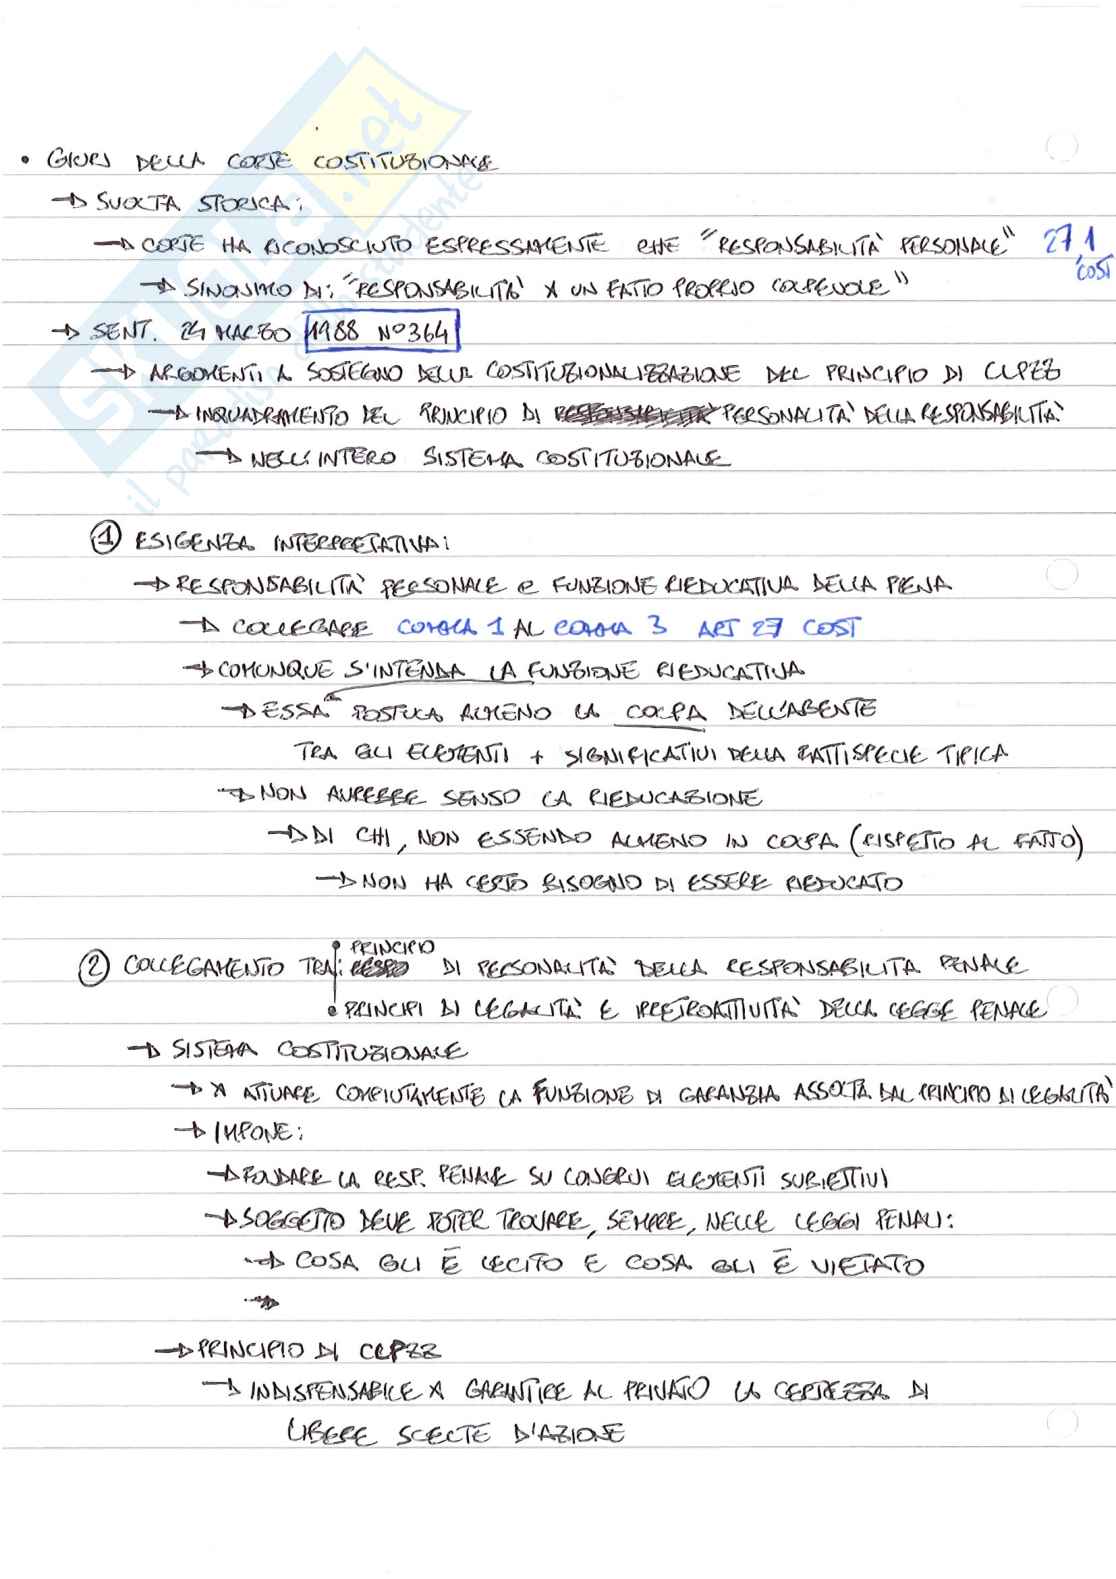 • GIURI DELLA CORTE COSTITUZIONALE
→ SVOLTA STORICA:
→ CORTE HA RICONOSCIUTO ESPRESSAMENTE CHE "RESPONSABILITÀ PERSONALE" 27, 1 COST
→ SINONIMO DI: "RESPONSABILITÀ X UN FATTO PROPRIO COLPEVOLE"
→ SENT. 24 MARZO 1988 N° 364
→ ARGOMENTI A SOSTEGNO DELLA COSTITUZIONALIZZAZIONE DEL PRINCIPIO DI CLPZZ
→ INQUADRAMENTO DEL PRINCIPIO DI PERSONALITÀ DELLA RESPONSABILITÀ
→ NELL'INTERO SISTEMA COSTITUZIONALE
① ESIGENZA INTERPRETATIVA:
→ RESPONSABILITÀ PERSONALE e FUNZIONE RIEDUCATIVA DELLA PENA
→ COLLEGARE COMMA 1 AL COMMA 3 ART 27 COST
→ COMUNQUE S'INTENDA LA FUNZIONE RIEDUCATIVA
→ ESSA POSTULA ALMENO LA COLPA DELL'AGENTE
TRA GLI ELEMENTI + SIGNIFICATIVI DELLA FATTISPECIE TIPICA
→ NON AVREBBE SENSO LA RIEDUCAZIONE
→ DI CHI, NON ESSENDO ALMENO IN COLPA (RISPETTO AL FATTO)
→ NON HA CERTO BISOGNO DI ESSERE RIEDUCATO
② COLLEGAMENTO TRA: • PRINCIPIO DI PERSONALITÀ DELLA RESPONSABILITA PENALE
• PRINCIPI DI LEGALITÀ E IRRETROATTIVITÀ DELLA LEGGE PENALE
→ SISTEMA COSTITUZIONALE
→ X ATTUARE COMPIUTAMENTE LA FUNZIONE DI GARANZIA ASSOLTA DAL PRINCIPIO DI LEGALITÀ
→ IMPONE:
→ FONDARE LA RESP. PENALE SU CONGRUI ELEMENTI SUBIETTIVI
→ SOGGETTO DEVE POTER TROVARE, SEMPRE, NELLE LEGGI PENALI:
→ COSA GLI È LECITO E COSA GLI È VIETATO
→
→ PRINCIPIO DI CLPZZ
→ INDISPENSABILE X GARANTIRE AL PRIVATO LA CERTEZZA DI
LIBERE SCELTE D'AZIONE
SKUOLA.net
il paradiso dello studente